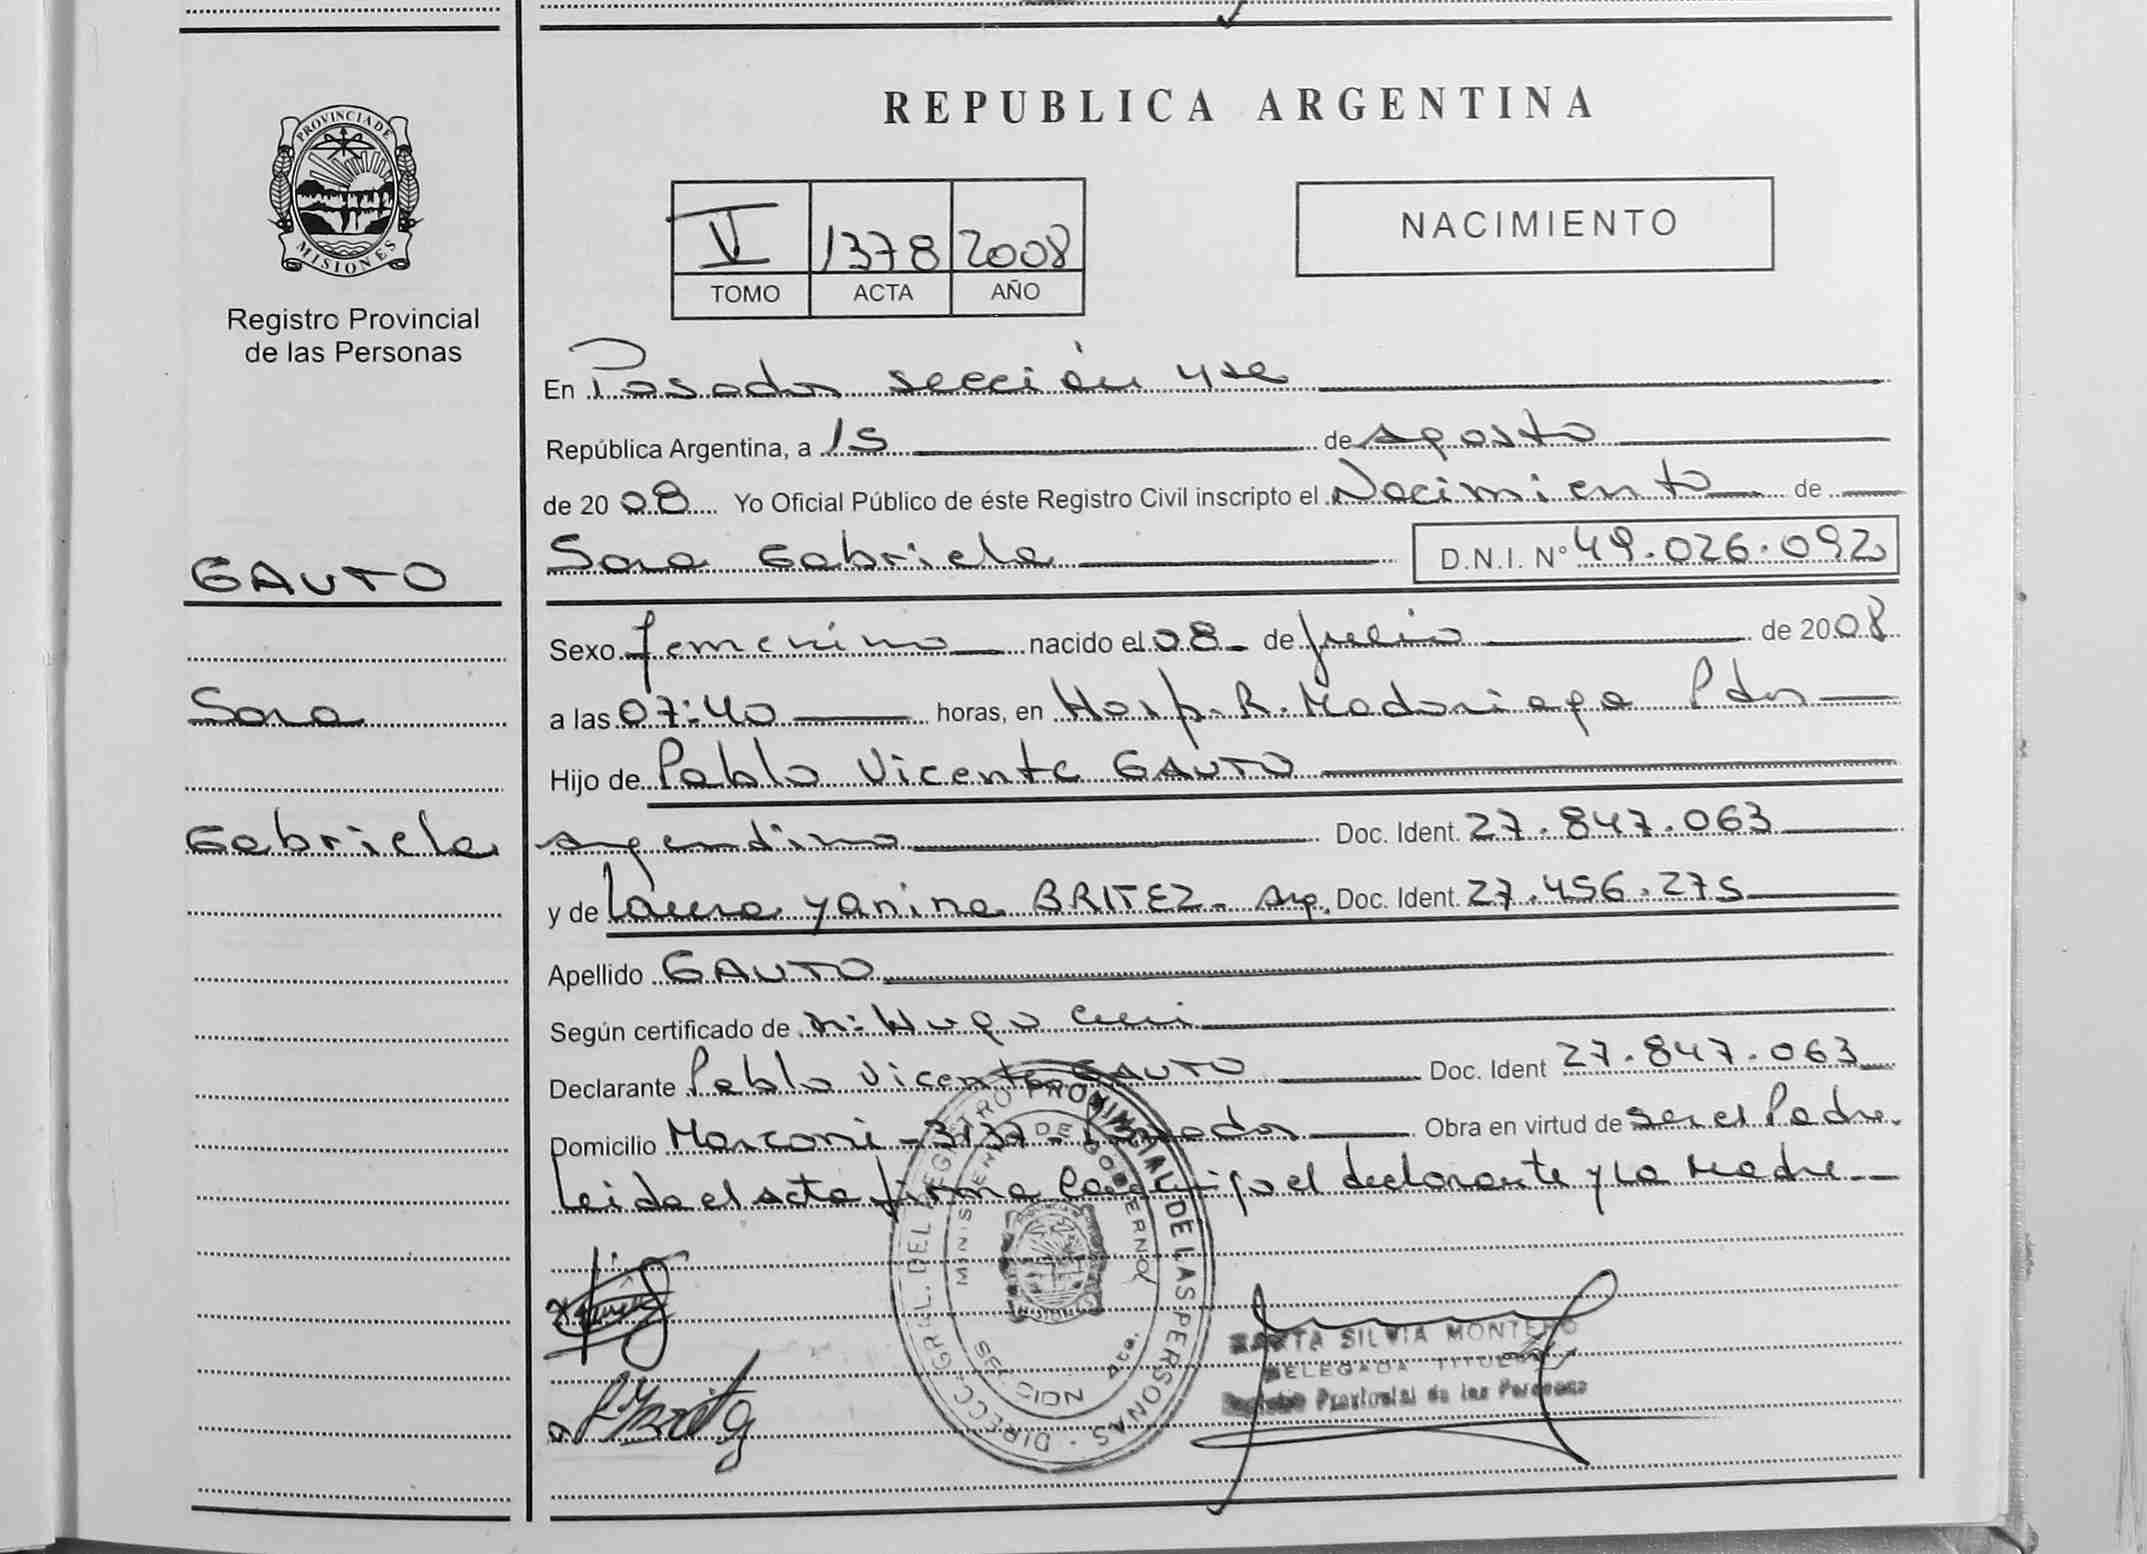 REPUBLICA ARGENTINA
PROVINCIA DE
MISIONES
Registro Provincial
de las Personas
V 1378 2008
TOMO ACTA AÑO
NACIMIENTO
En Posadas sección 4ta
República Argentina, a 15 de agosto
de 2008 Yo Oficial Público de éste Registro Civil inscripto el Nacimiento de
GAUTO
Sara Gabriela D.N.I. N° 49.026.092
Sexo femenino nacido el 08 de julio de 2008
Sara
a las 07:40 horas, en Hosp. R. Madariaga Pdas
Hijo de Pablo Vicente GAUTO
Gabriela
argentino Doc. Ident. 27.847.063
y de Laura Yanina BRITEZ - arg. Doc. Ident. 27.456.275
Apellido GAUTO
Según certificado de Hugo
Declarante Pablo Vicente GAUTO Doc. Ident 27.847.063
Domicilio Marconi - 3137 - Posadas Obra en virtud de ser el Padre.
Leida el acta firma conmigo el declarante y la Madre
DIRECC. GRAL. DEL REGISTRO PROVINCIAL DE LAS PERSONAS
MINISTERIO DE GOBIERNO
SECCION 4ta.
MARTA SILVIA MONTERO
DELEGADA TITULAR
Registro Provincial de las Personas